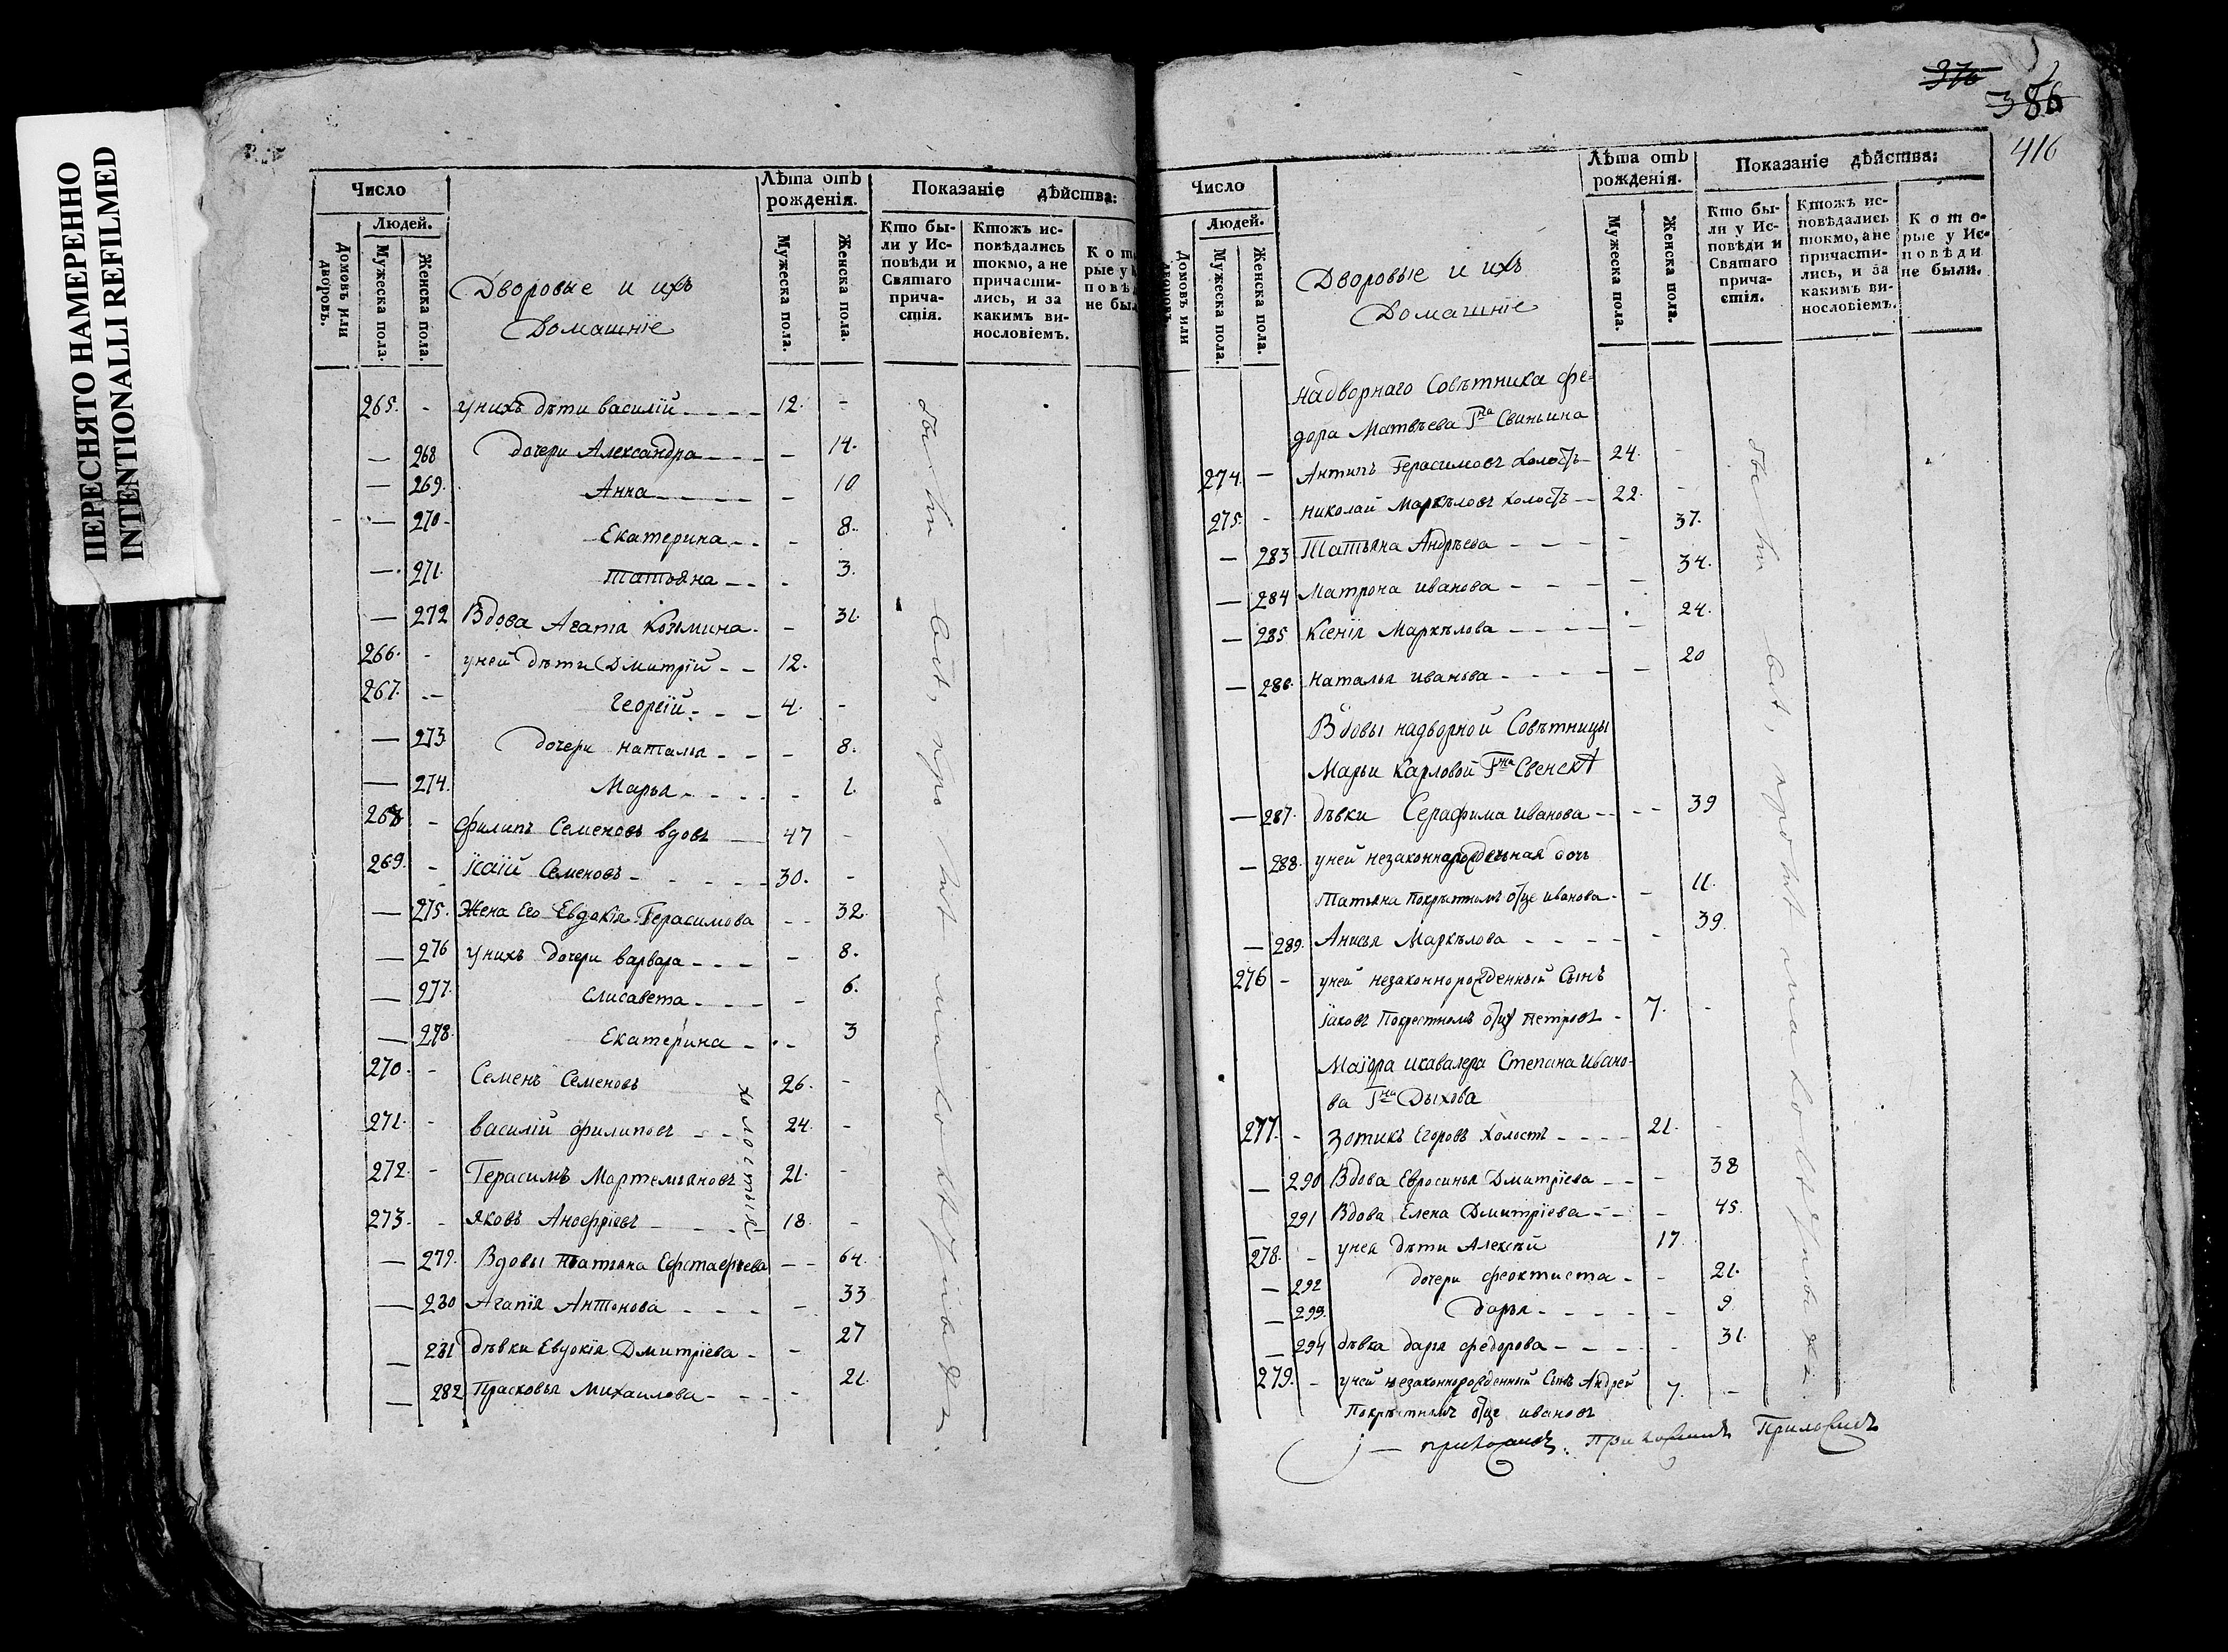 ПЕРЕСНЯТО НАМЕРЕННО
INTENTIONALLI REFILMED
Число
Людей.
Домовъ или дворовъ.
Мужеска пола.
Женска пола.
Дворовые и ихъ
Домашніе
Лѣта отъ рожденія.
Мужеска пола.
Женска пола.
Показаніе дѣйства:
Кто были у Исповѣди и Святаго причастія.
Ктожъ исповѣдались токмо, а не причастились, и за какимъ винословіемъ.
265. - унихъ дѣти василій - - - - 12. -
— 268 дочери Александра - - - - 14.
— 269. Анна - - - - - 10
— 270 - Екатерина - - - 8.
— 271. татьяна - - - 3.
— 272 Вдова Агапія Козьмина - - 31.
266. - уней дѣти Дмитрій - - 12.
267. - Георгій - - - 4. -
— 273. дочери наталья - - - 8.
— 274. Марья - - - - - 1.
268 - филипъ Семеновъ вдовъ — 47 -
269. - Исаій Семеновъ - - - - 30. -
— 275. Жена Его Евдокія Герасимова - - 32.
— 276 Унихъ дочери варвара - - - - 8.
— 277. Елисавета - - - - 6.
— 278. Екатерина - - - 3
270. - Семенъ Семеновъ 26. -
271. - василій филиповъ - - 24. -
272. - Герасимъ Мартемьяновъ 21. -
273. - Яковъ Аноѳріевъ - - - 18. -
холостые
— 279. Вдовы татьяна Евстафьева - - 64.
— 280 Агапія Антонова - - - - 33
— 281 дѣвки Евдокія Дмитріева - - 27
— 282 Прасковья Михаилова - - - 21.
376
386
416
Число
Людей.
Домовъ или дворовъ
Мужеска пола.
Женска пола.
Дворовые и ихъ
Домашніе
Лѣта отъ рожденія.
Мужеска пола.
Женска пола.
Показаніе дѣйства:
Кто были у Исповѣди и Святаго причастія.
Ктожъ исповѣдались токмо, а не причастились, и за какимъ винословіемъ.
Которые у Исповѣди не были.
надворнаго Совѣтника фе-
дора Матвѣева Гна Свиньина
274. — Антипъ Герасимовъ холостъ - 24. -
275. - николай Маркѣловъ холостъ - 22. -
— 283 Татьяна Андрѣева - - - - 37.
— 284 Матрона иванова - - - - 34.
— 285 Ксенія Маркѣлова - - - - 24.
— 286. наталья иванова - - - - 20
Вдовы надворной Совѣтницы
Марьи Карловой Гна
— 287. дѣвки Серафима иванова - - - 39
— 288. уней незаконнорожденная дочь
Татьяна Покрѣстномъ отце иванова - - 11.
— 289. Анисья Маркѣлова - - - - - 39.
276 - уней незаконнорожденный Сынъ
Іаковъ Покрестномъ отцу петровъ - 7. -
Маіора икавалера Степана Ивано-
ва Гна Дыхова
277. - Зотикъ Егоровъ Холостъ - - - 21. -
— 290 Вдова Евросинья Дмитріева - - - 38
— 291 Вдова Елена Дмитріева - - - 45.
278. - унея дѣти Алексѣй 17
— 292 дочери феоктиста - - 21.
— 293. дарья - - - - - 9.
— 294 дѣвка дарья федорова - - - - 31.
279. - уней незаконнорожденный Сынъ Андрей 7. -
Покрѣстномъ отце ивановъ